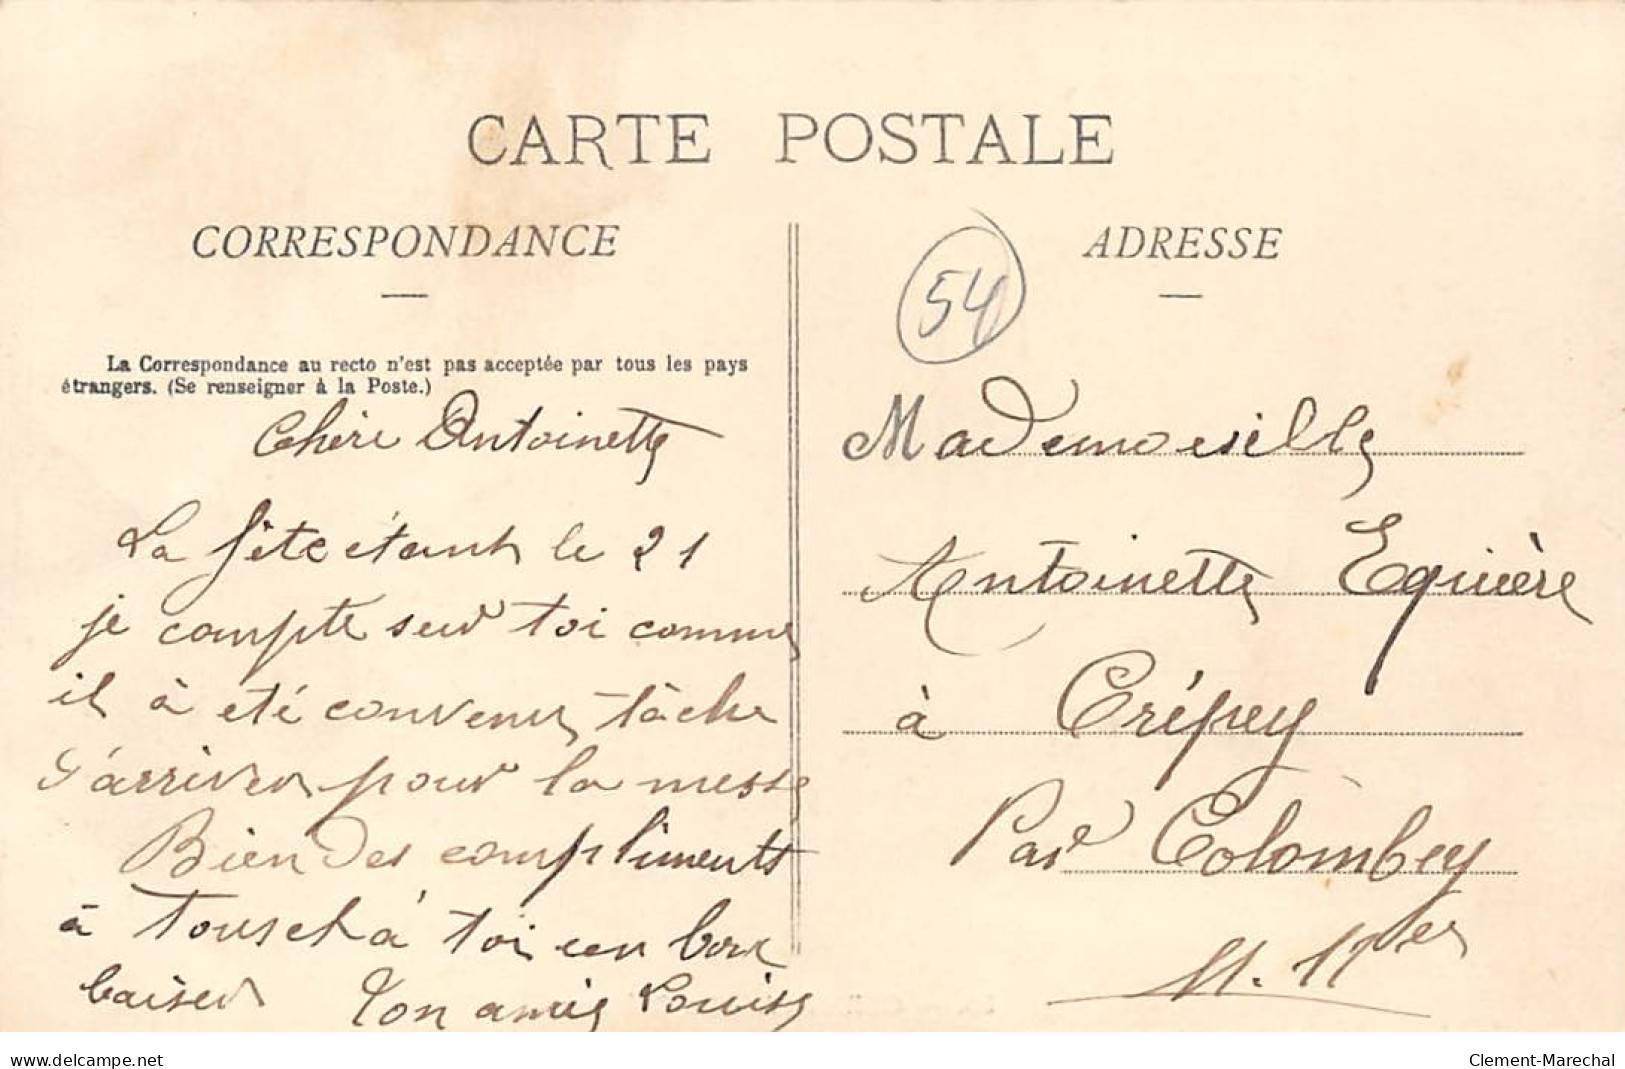 CARTE POSTALE
CORRESPONDANCE
La Correspondance au recto n'est pas acceptée par tous les pays
étrangers. (Se renseigner à la Poste.)
Chère Antoinette
La fête étant le 21
je compte sur toi comme
il à été convenue, tâche
d'arriver pour la messe
Bien des compliments
à tous et à toi un bon
baiser Ton amie Louise
ADRESSE
54
Mademoiselle
Antoinette Equière
à Crépey
Par Colombey
M. Mlle
www.delcampe.net
Clement-Marechal